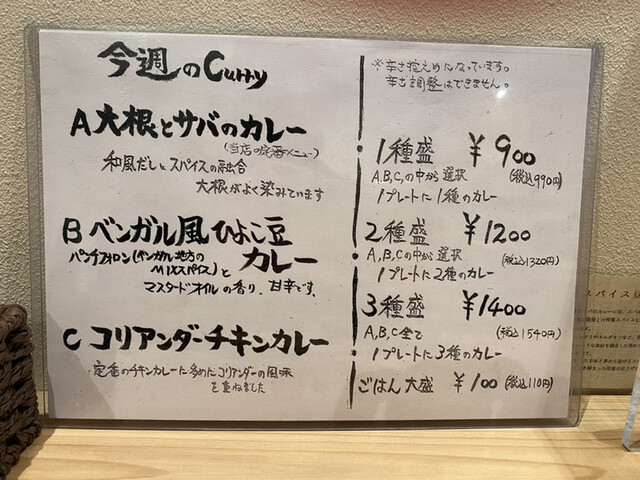 今週のCurry
A大根とサバのカレー
(当店の定番メニュー)
和風だしとスパイスの融合
大根がよく染みています
B ベンガル風ひよこ豆
カレー
パンチフォロン(ベンガル地方の
MIXスパイス)と
マスタードオイルの香り、甘辛です。
C コリアンダーチキンカレー
定番のチキンカレーに多めにコリアンダーの風味
を重ねました
※辛さ控えめになっています。
辛さを調整はできません。
・1種盛 ¥900
A,B,C,の中から選択 (税込990円)
1プレートに1種のカレー
・2種盛 ¥1200
A,B,Cの中から選択 (税込1320円)
1プレートに2種のカレー
3種盛 ¥1400
A,B,C全て (税込1540円)
・1プレートに3種のカレー
ごはん大盛 ¥100 (税込110円)